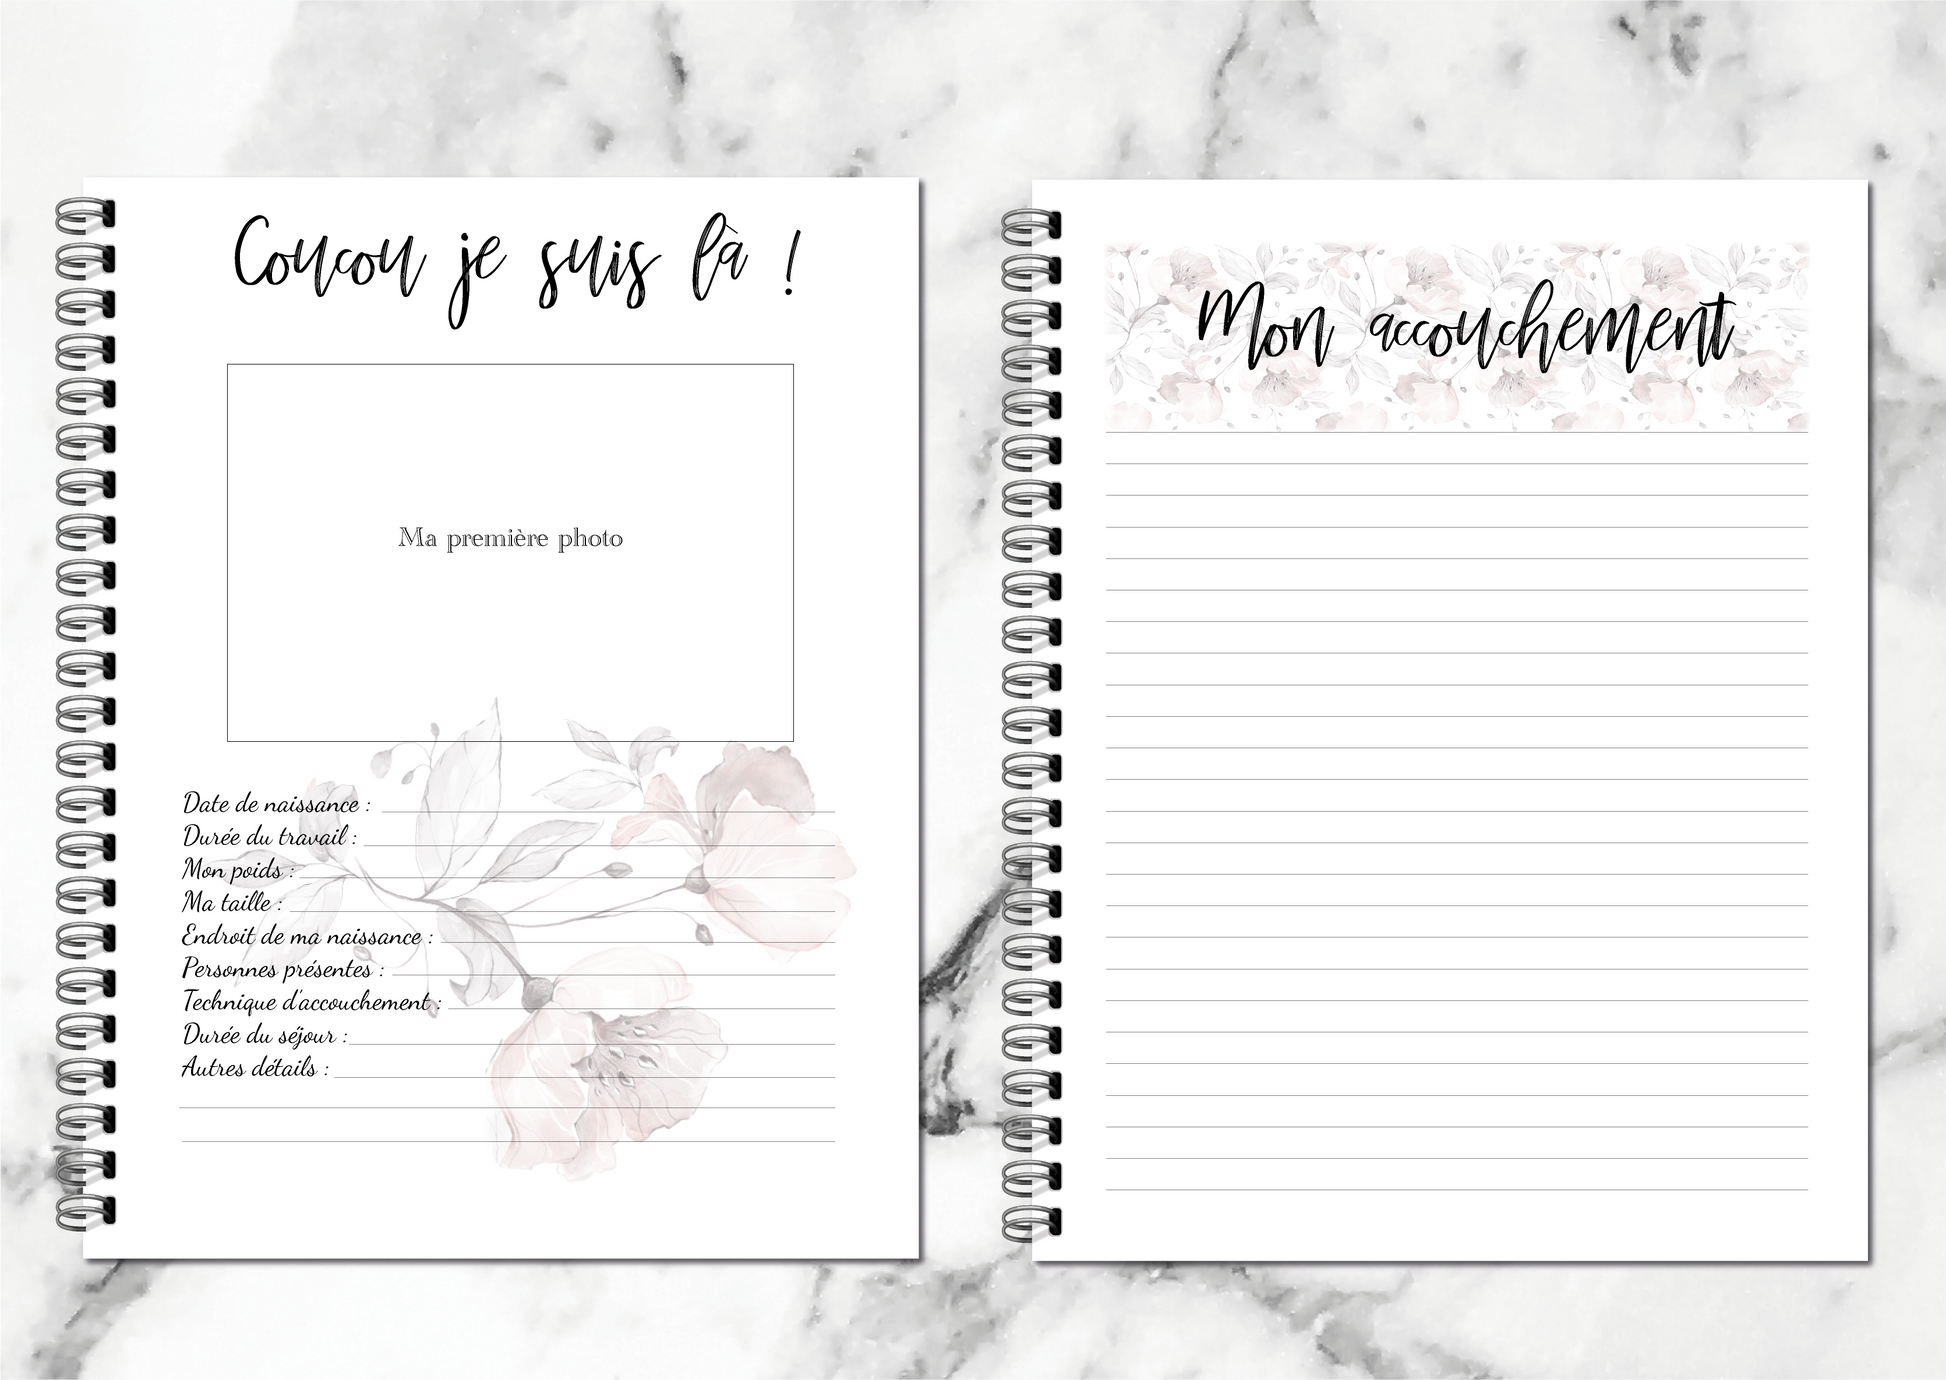 Coucou je suis là !
Ma première photo
Date de naissance :
Durée du travail :
Mon poids :
Ma taille :
Endroit de ma naissance :
Personnes présentes :
Technique d'accouchement :
Durée du séjour :
Autres détails :
Mon accouchement